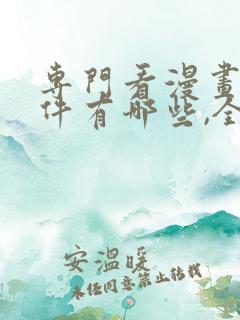 專門看漫畫
件有哪些,全
安溫暖
未经同意禁止转载